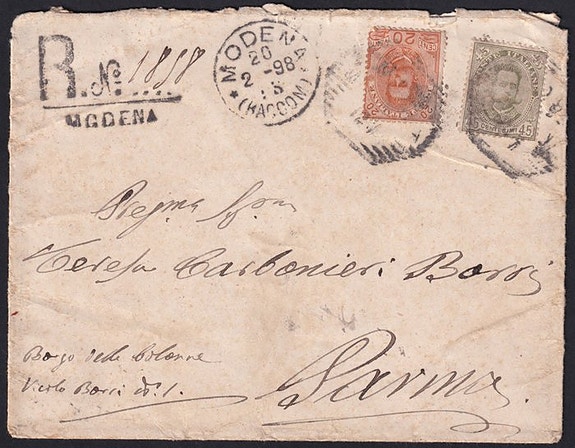 R. No 1898
MODENA
MODENA
20
2-98
(RACCOM)
CENT. 20
POSTE ITALIANE
45
Pregma Sigra
Teresa Carbonieri Borri
Borgo delle Colonne
Vicolo Borri No 1.
Parma